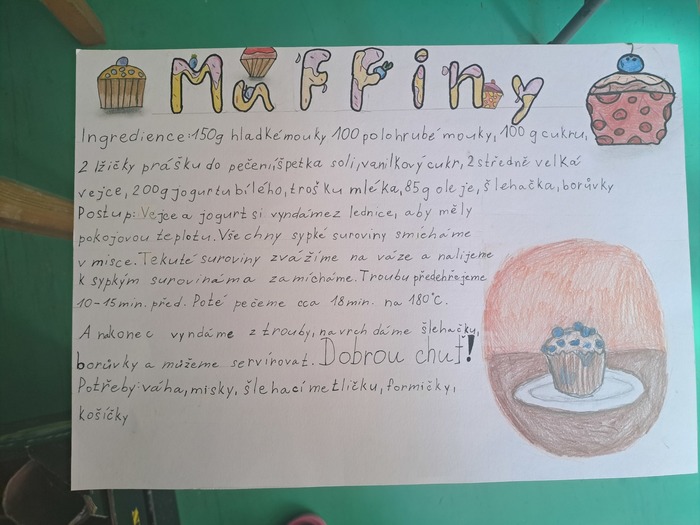 Muffiny
Ingredience: 150g hladké mouky 100 polohrubé mouky, 100 g cukru,
2 lžičky prášku do pečení, špetka soli, vanilkový cukr, 2 středně velká
vejce, 200g jogurtu bílého, trošku mléka, 85g oleje, šlehačka, borůvky
Postup: Vejce a jogurt si vyndáme z lednice, aby měly
pokojovou teplotu. Všechny sypké suroviny smícháme
v misce. Tekuté suroviny zvážíme na váze a nalijeme
k sypkým surovinám a zamícháme. Troubu předehřejeme
10-15 min. před. Poté pečeme cca 18 min. na 180°C.
A nakonec vyndáme z trouby, navrch dáme šlehačku,
borůvky a můžeme servírovat. Dobrou chuť!
Potřeby: váha, misky, šlehací metličku, formičky,
košíčky